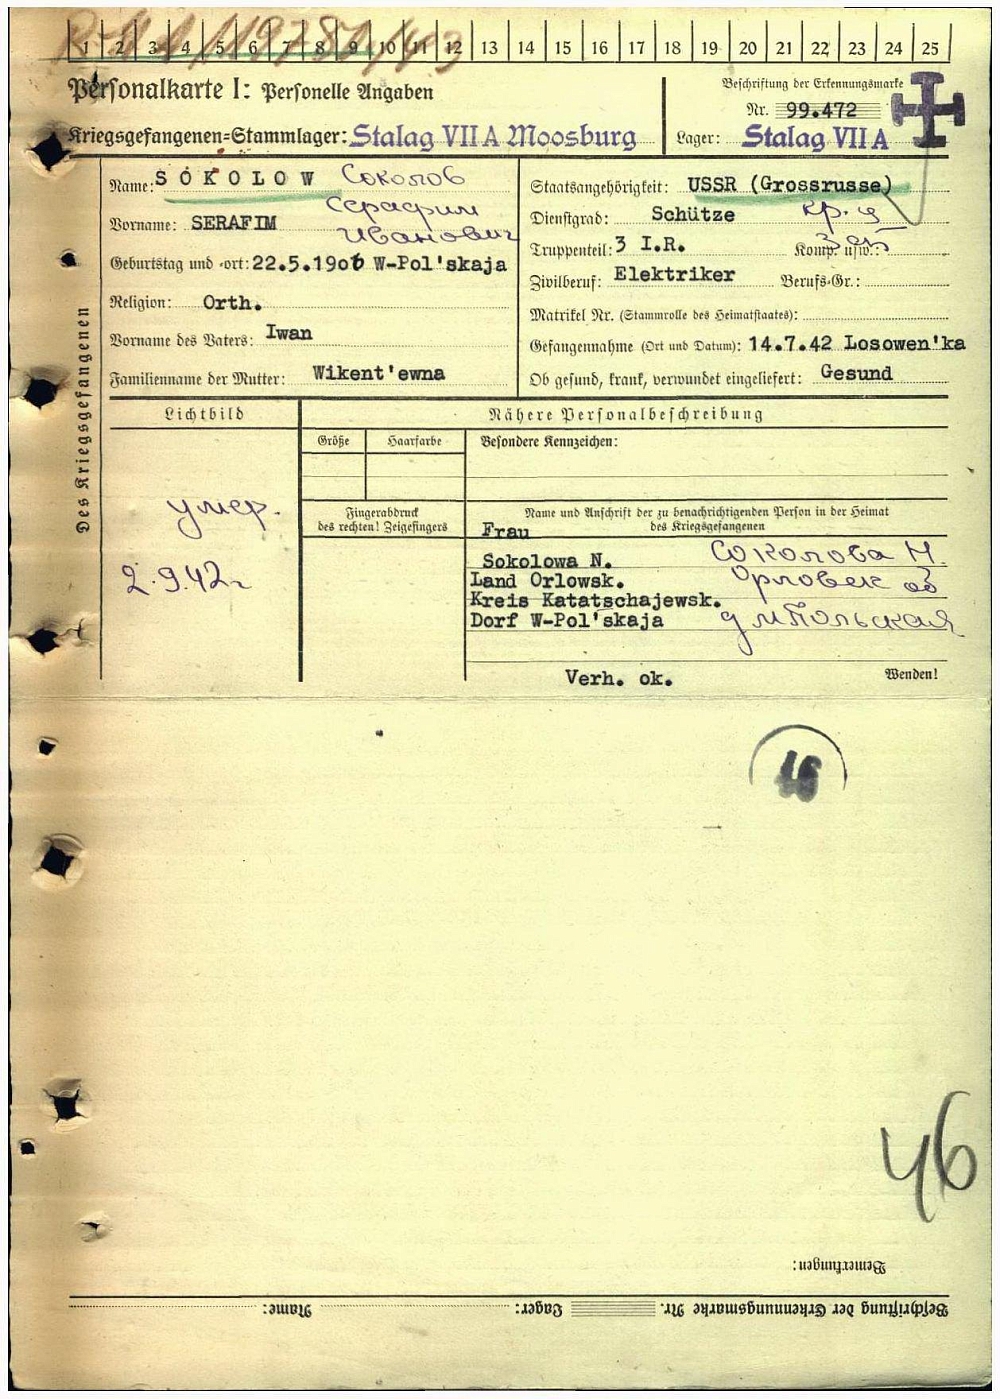 1 2 3 4 5 6 7 8 9 10 11 12 13 14 15 16 17 18 19 20 21 22 23 24 25
Personalkarte I: Personelle Angaben
Kriegsgefangenen-Stammlager: Stalag VII A Moosburg
Beschriftung der Erkennungsmarke
Nr. 99.472
Lager: Stalag VII A
Des Kriegsgefangenen
Name: SOKOLOW Соколов
Серафим
Vorname: SERAFIM Иванович
Geburtstag und -ort: 22.5.1906 W-Pol'skaja
Religion: Orth.
Vorname des Vaters: Iwan
Familienname der Mutter: Wikent'ewna
Staatsangehörigkeit: USSR (Grossrusse)
Dienstgrad: Schütze кр-ц
Truppenteil: 3 I.R. Komp. usw.:
Zivilberuf: Elektriker Berufs-Gr.:
Matrikel Nr. (Stammrolle des Heimatstaates):
Gefangennahme (Ort und Datum): 14.7.42 Losowen'ka
Ob gesund, krank, verwundet eingeliefert: Gesund
Lichtbild
умер.
2.9.42г
Nähere Personalbeschreibung
Größe Haarfarbe Besondere Kennzeichen:
Fingerabdruck
des rechten! Zeigefingers
Name und Anschrift der zu benachrichtigenden Person in der Heimat
des Kriegsgefangenen
Frau
Sokolowa N. Соколова Н.
Land Orlowsk. Орловск об
Kreis Katatschajewsk.
Dorf W-Pol'skaja д Польская
Verh. ok.
Wenden!
46
46
Bemerkungen:
Beschriftung der Erkennungsmarke Nr. Lager: Name: